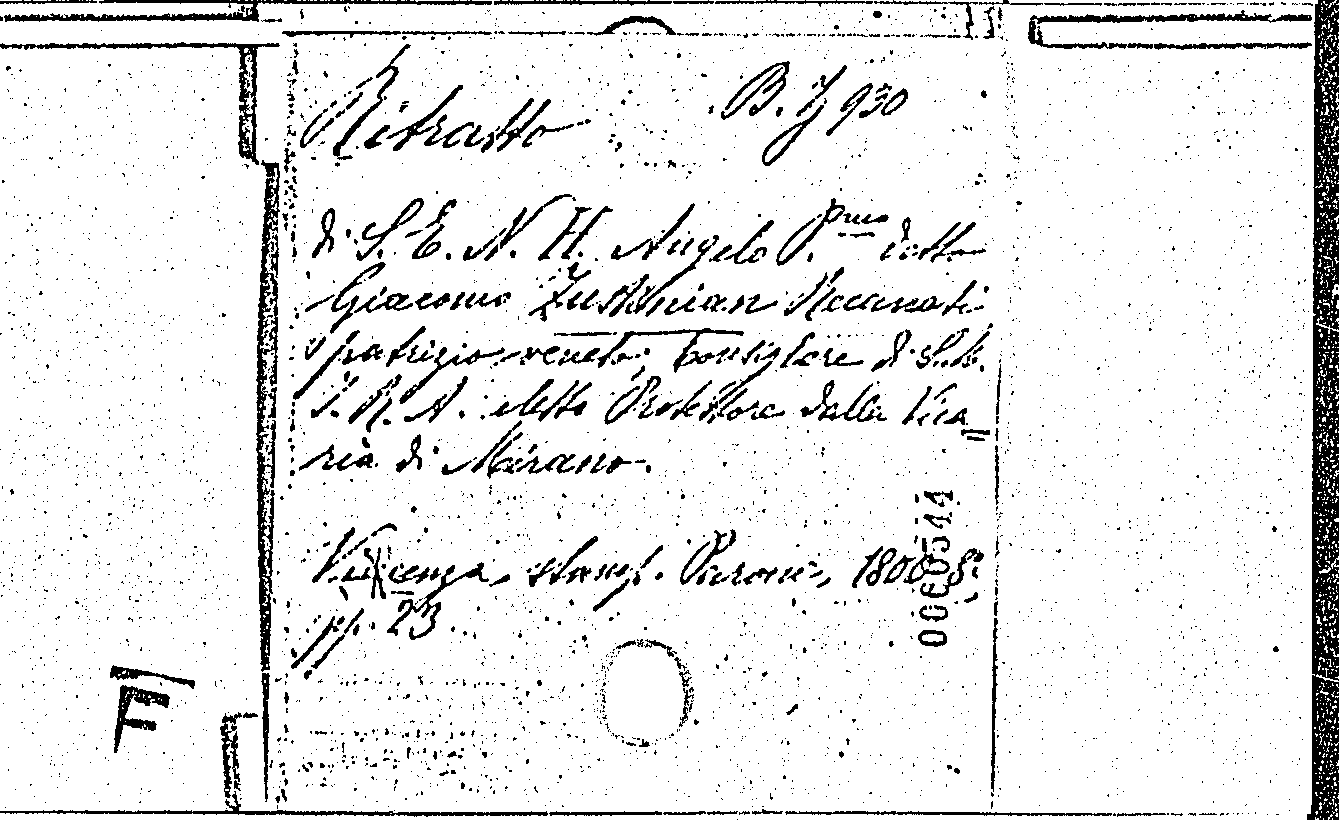 Ritratto B. Z 930
di S. E. N. H. Angelo P.mo detto
Giacomo Zustinian Recanati
patrizio veneto, consigliere di S. M.
I. R. A. eletto Protettore dalla Vica=
ria di Mirano.
Vicenza, stamp. Paroni, 1800 8.
pp. 23
0000544
F